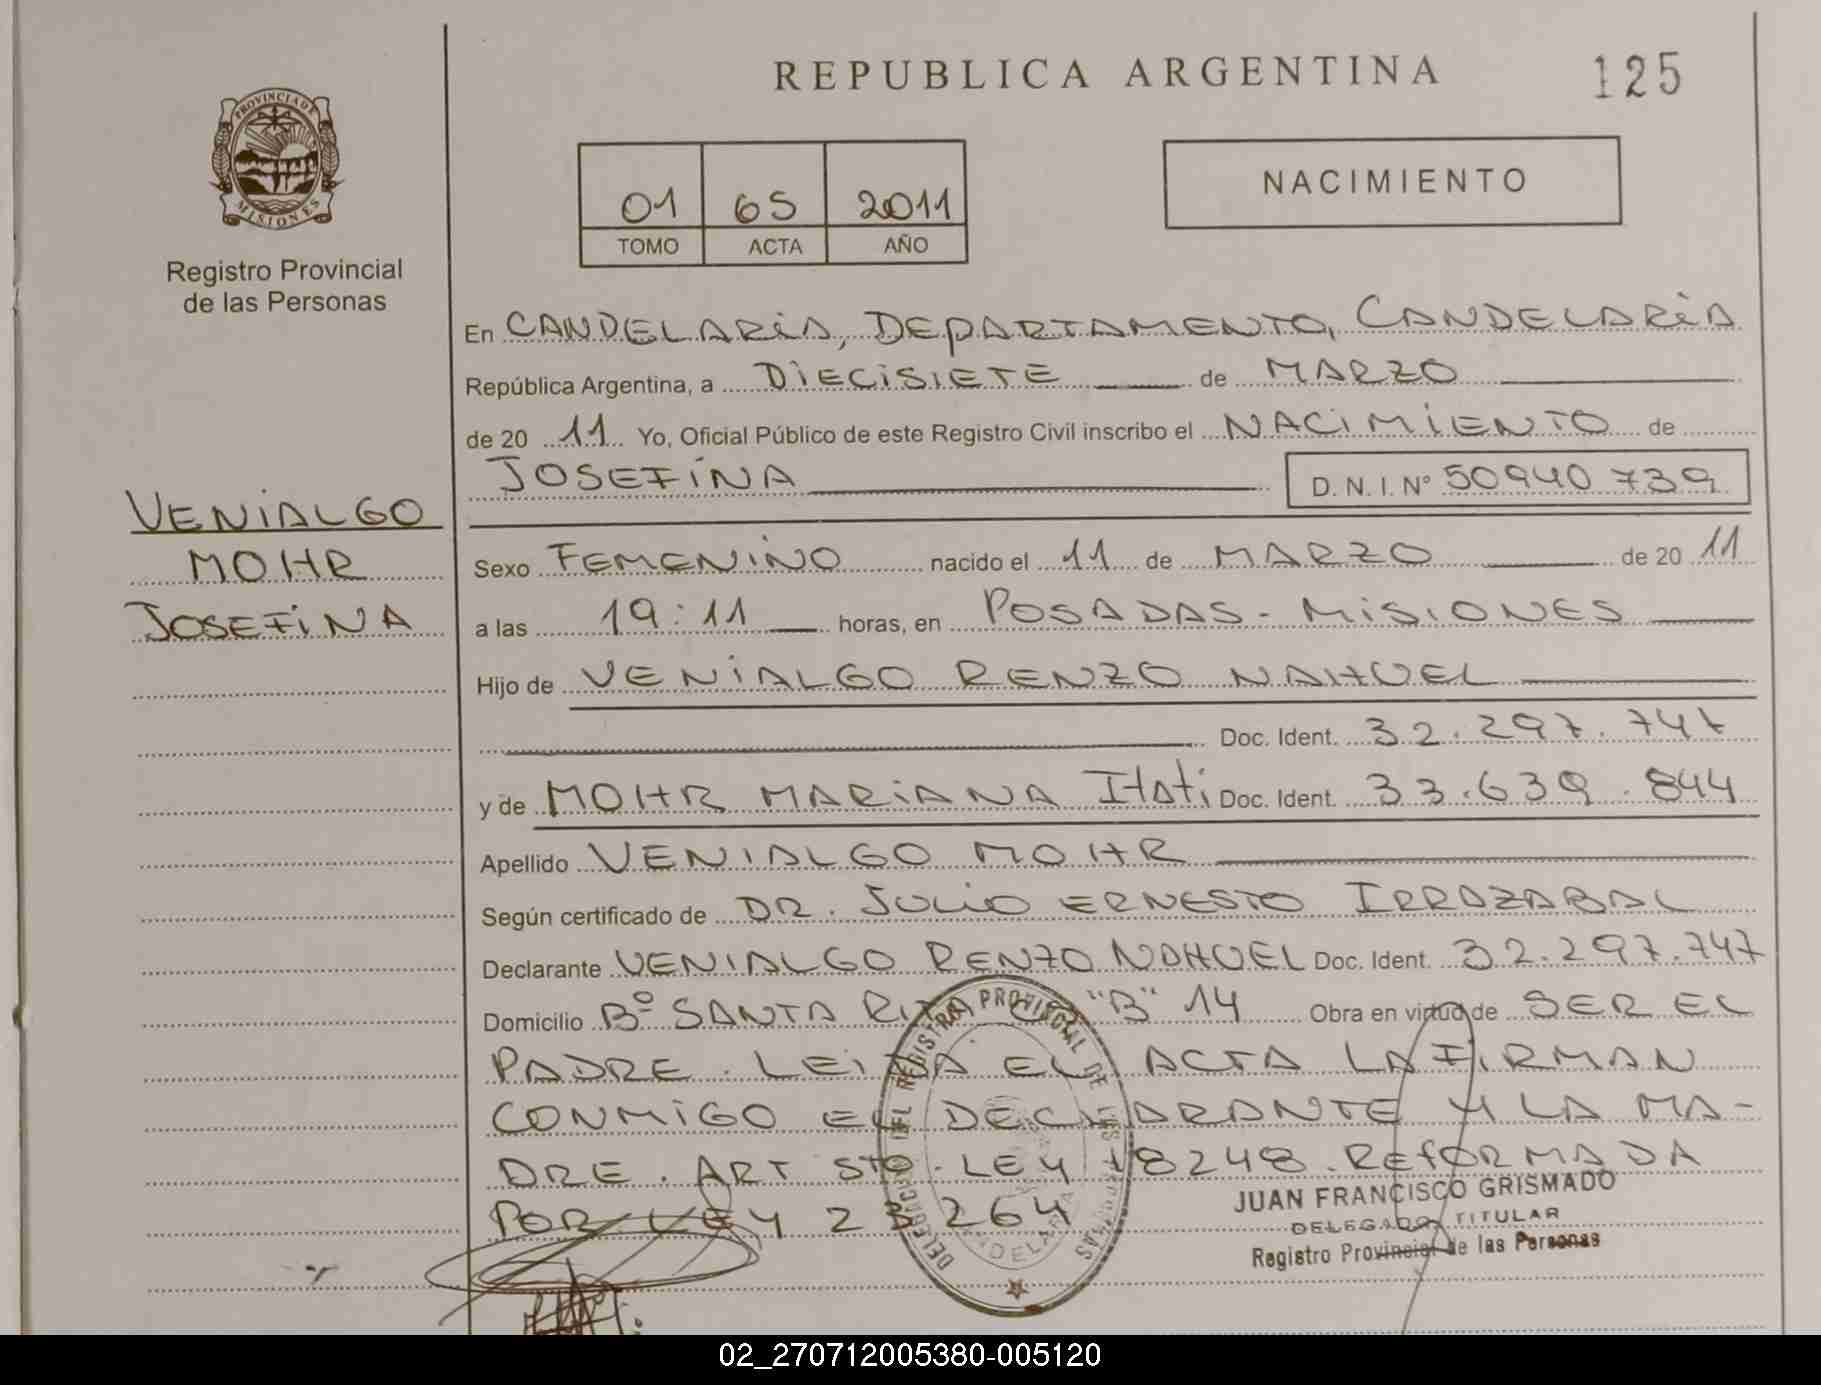 REPUBLICA ARGENTINA
125
PROVINCIA DE
MISIONES
Registro Provincial
de las Personas
01 65 2011
TOMO ACTA AÑO
NACIMIENTO
En CANDELARIA, DEPARTAMENTO, CANDELARIA
República Argentina, a DIECISIETE de MARZO
de 20 11 Yo, Oficial Público de este Registro Civil inscribo el NACIMIENTO de
JOSEFINA D. N. I. Nº 50940 739
VENIALGO
MOHR
JOSEFINA
Sexo FEMENINO nacido el 11 de MARZO de 20 11
a las 19:11 horas, en POSADAS - MISIONES
Hijo de VENIALGO RENZO NAHUEL
Doc. Ident. 32.297.747
y de MOHR MARIANA Itati Doc. Ident. 33.639.844
Apellido VENIALGO MOHR
Según certificado de DR. JULIO ERNESTO IRRAZABAL
Declarante VENIALGO RENZO NAHUEL Doc. Ident. 32.297.747
Domicilio Bº SANTA RITA "B" 14 Obra en virtud de SER EL
PADRE. LEIDA EL ACTA LA FIRMAN
CONMIGO EL DECLARANTE Y LA MA-
DRE. ART 5TO. LEY 18248. REFORMADA
POR LEY 23 264
DELEGACION DEL REGISTRO PROVINCIAL DE LAS PERSONAS
CANDELARIA
JUAN FRANCISCO GRISMADO
DELEGADO TITULAR
Registro Provincial de las Personas
02_270712005380-005120